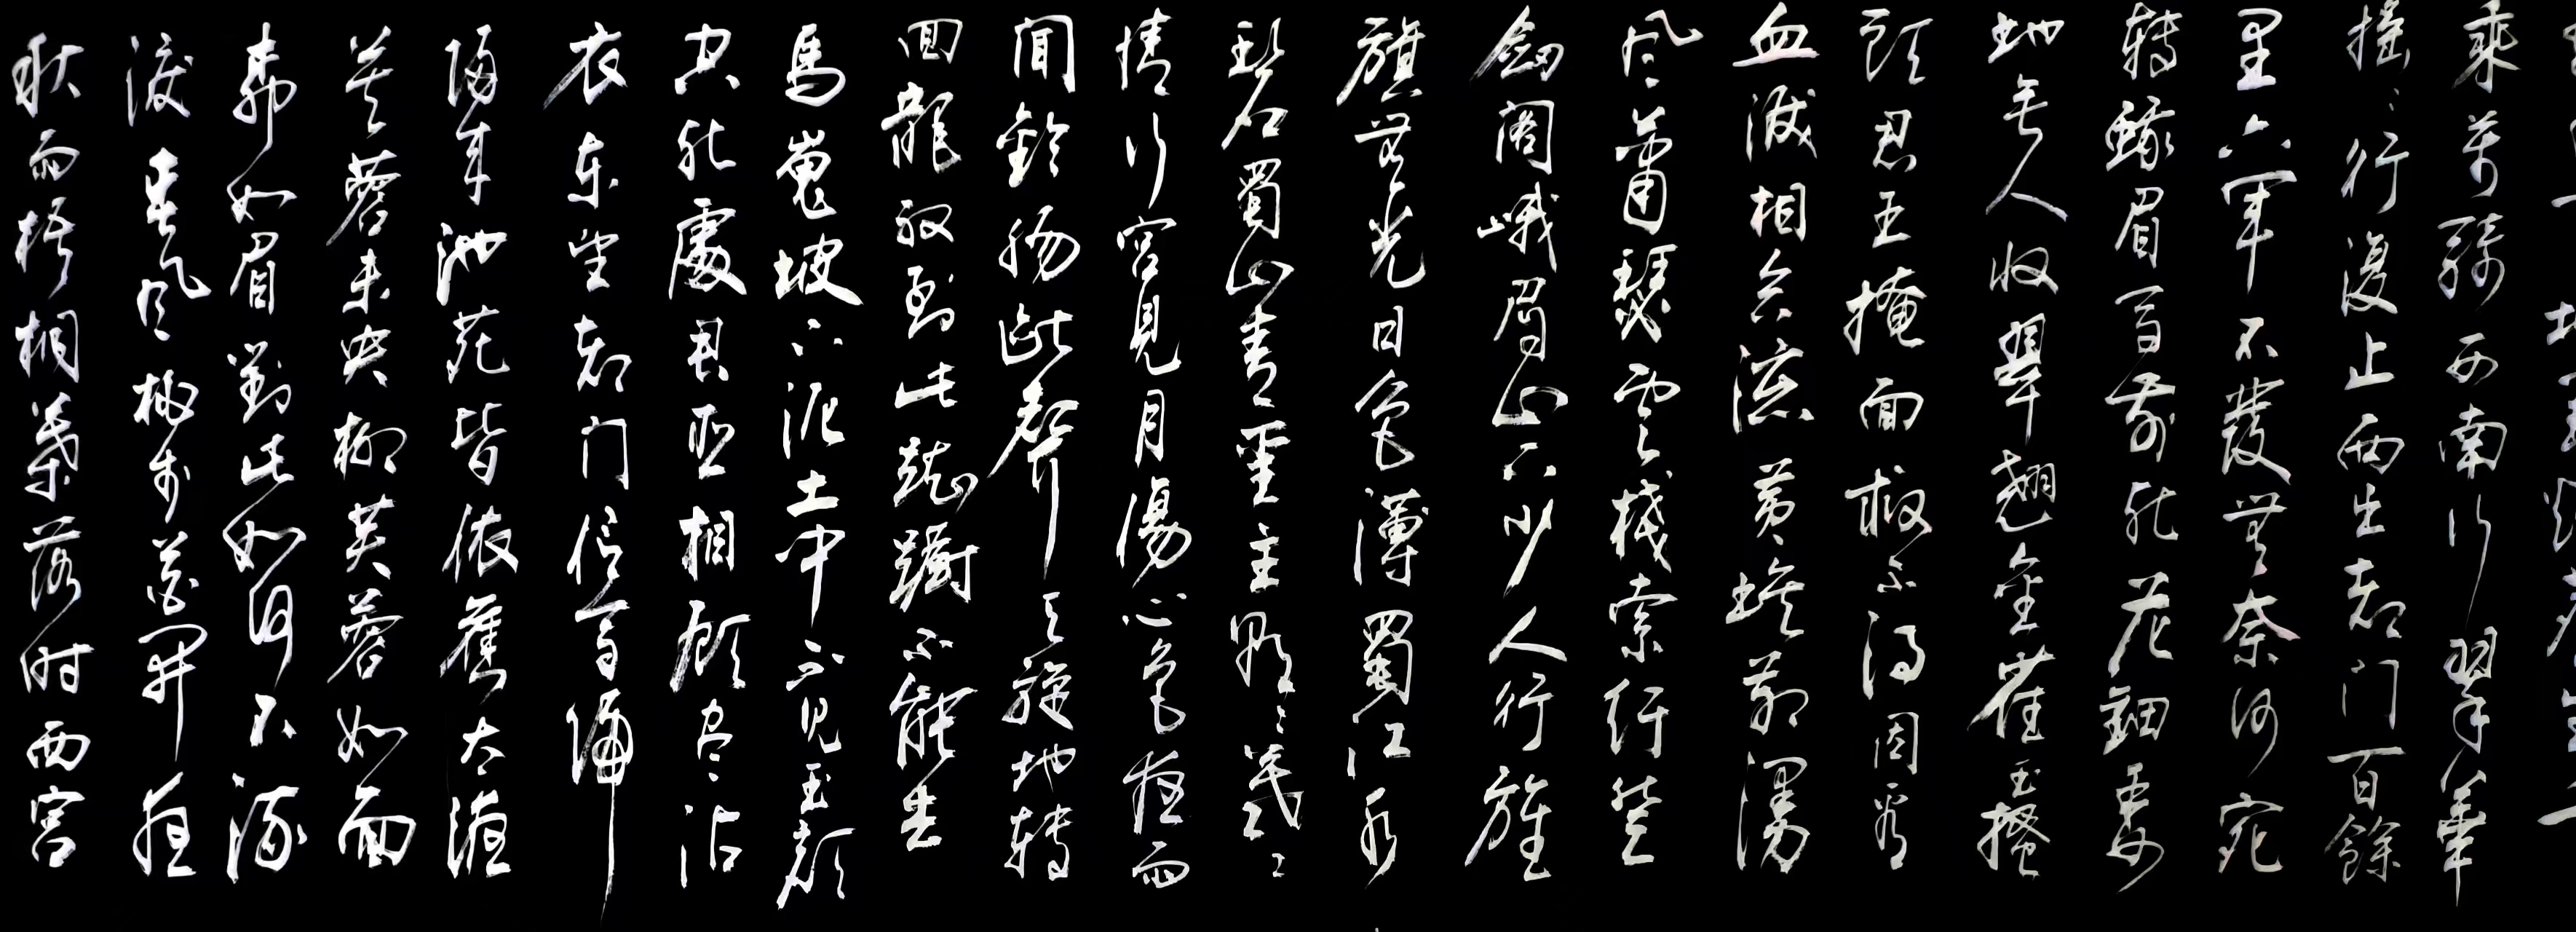 乘萬騎西南行翠華
搖〻行復止西出都門百餘
里六軍不發無奈何宛
轉蛾眉馬前死花鈿委
地無人收翠翹金雀玉搔
頭君王掩面救不得回看
血淚相和流黃埃散漫
風蕭瑟雲棧縈紆登
劍閣峨眉山下少人行旌
旗無光日色薄蜀江水
碧蜀山青聖主朝〻暮〻
情行宮見月傷心色夜雨
聞鈴腸斷聲天旋地轉
回龍馭到此躊躇不能去
馬嵬坡下泥土中不見玉顏
空死處君臣相顧盡沾
衣東望都門信馬歸
歸來池苑皆依舊太液
芙蓉未央柳芙蓉如面
柳如眉對此如何不流
淚春風桃李花開夜
秋雨梧桐葉落時西宮